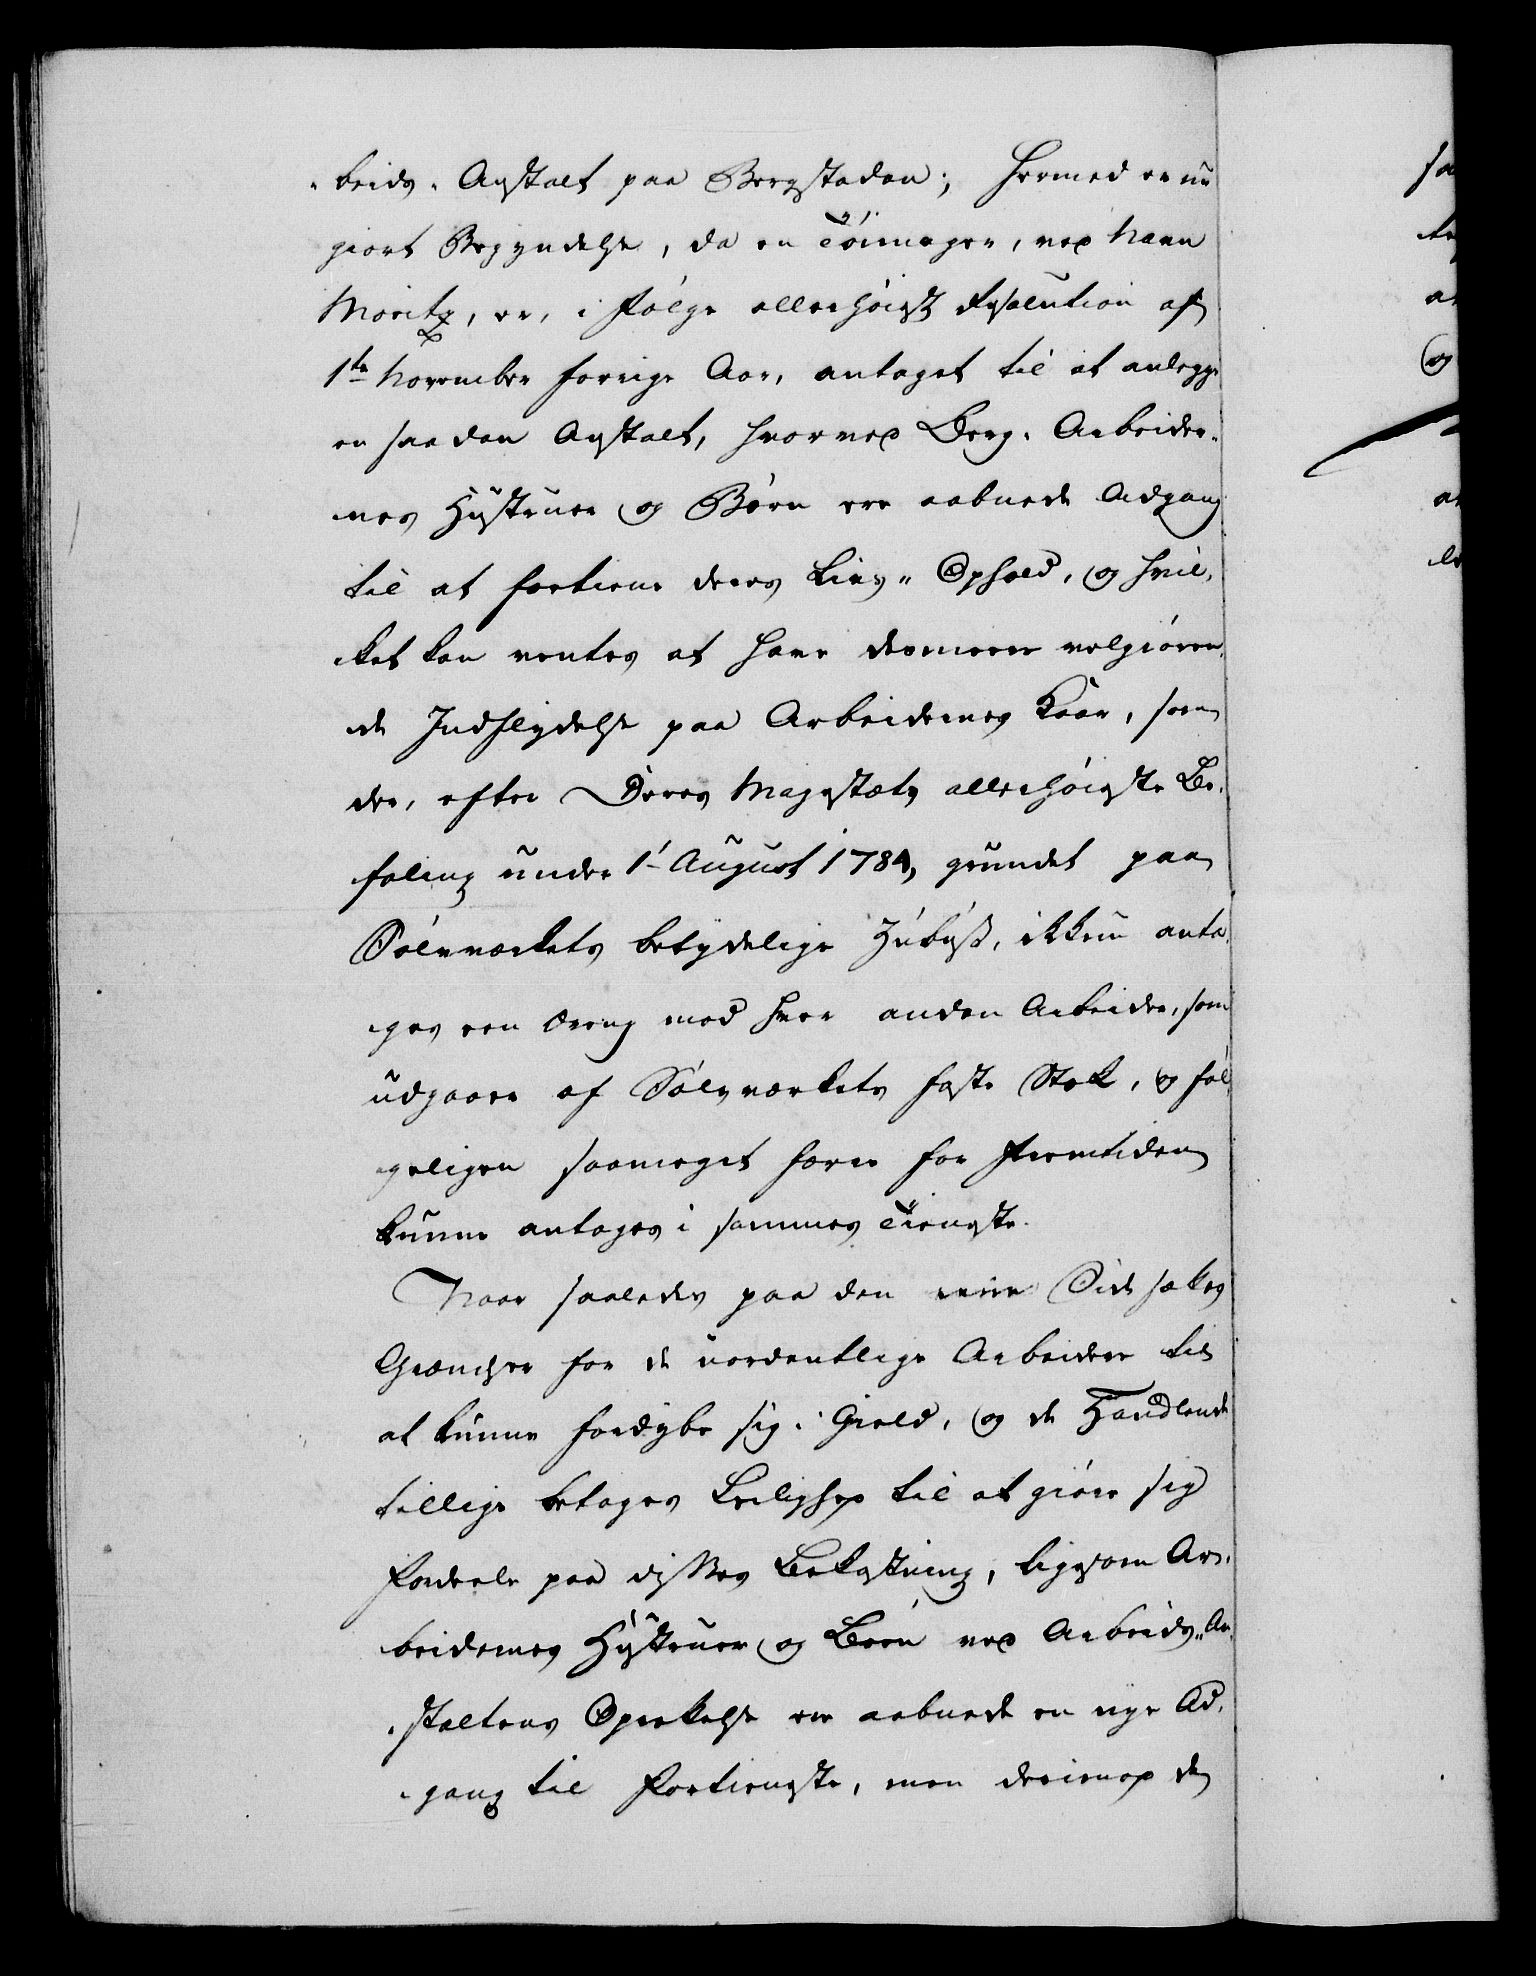 -beids-Anstalt paa Bergstaden; Hermed er nu
giort Begyndelse, da en Tøimager, ved Navn
Moritz, er, i Følge allerhøiest Resolution af
1te November forrige Aar, antaget til at anlegge
en saadan Anstalt, hvorved Berg-Arbeider-
nes Hustruer og Børn ere aabnede Adgang
til at fortiene deres Livs-Ophold, og hvil-
ket kan ventes at have desmeere velgiøren-
de Indflydelse paa Arbeidernes Kaar, som
der, efter Deres Majestæts allerhøieste Be-
faling under 1te August 1784, grundet paa
Sølvverkets betydelige Zubuss, ikkun anta-
ges een Dreng mod hver anden Arbeider, som
udgaaer af Sølvverkets faste Stok, og føl-
geligen saameget færre for Fremtiden
kunne antages i sammes Tieneste.
Naar saaledes paa den eene Side sættes
Grændser for de uordentlige Arbeidere til
at kunne fordybe sig i Gield, og de Handlende
tillige betages Leilighed til at giøre sig
Fordeele paa disses Bekostning, ligesom Ar-
beidernes Hustruer og Børn ved Arbeids-An-
staltens Oprettelse ere aabnede en nye Ad-
gang til Fortieneste, men derimod de